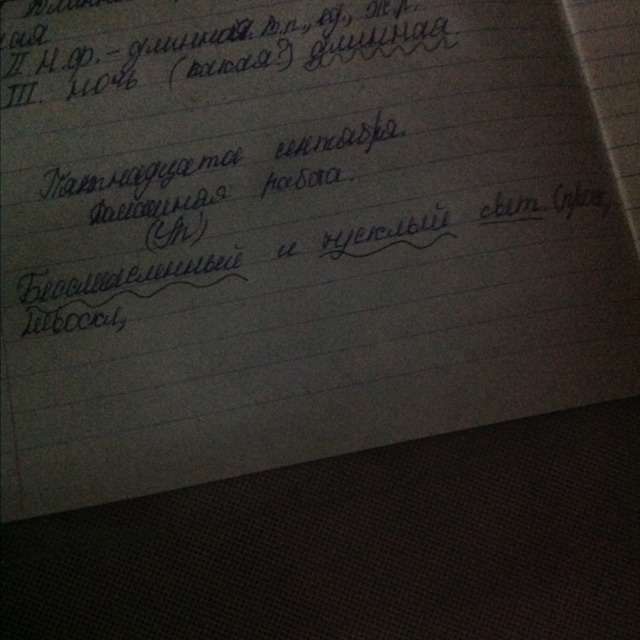 ая
II Н.ф. - длинная. И.п., ед., ж.р.
III. ночь (какая?) длинная
Пятнадцатое октября.
Домашняя работа.
Бессмысленный и тусклый свет